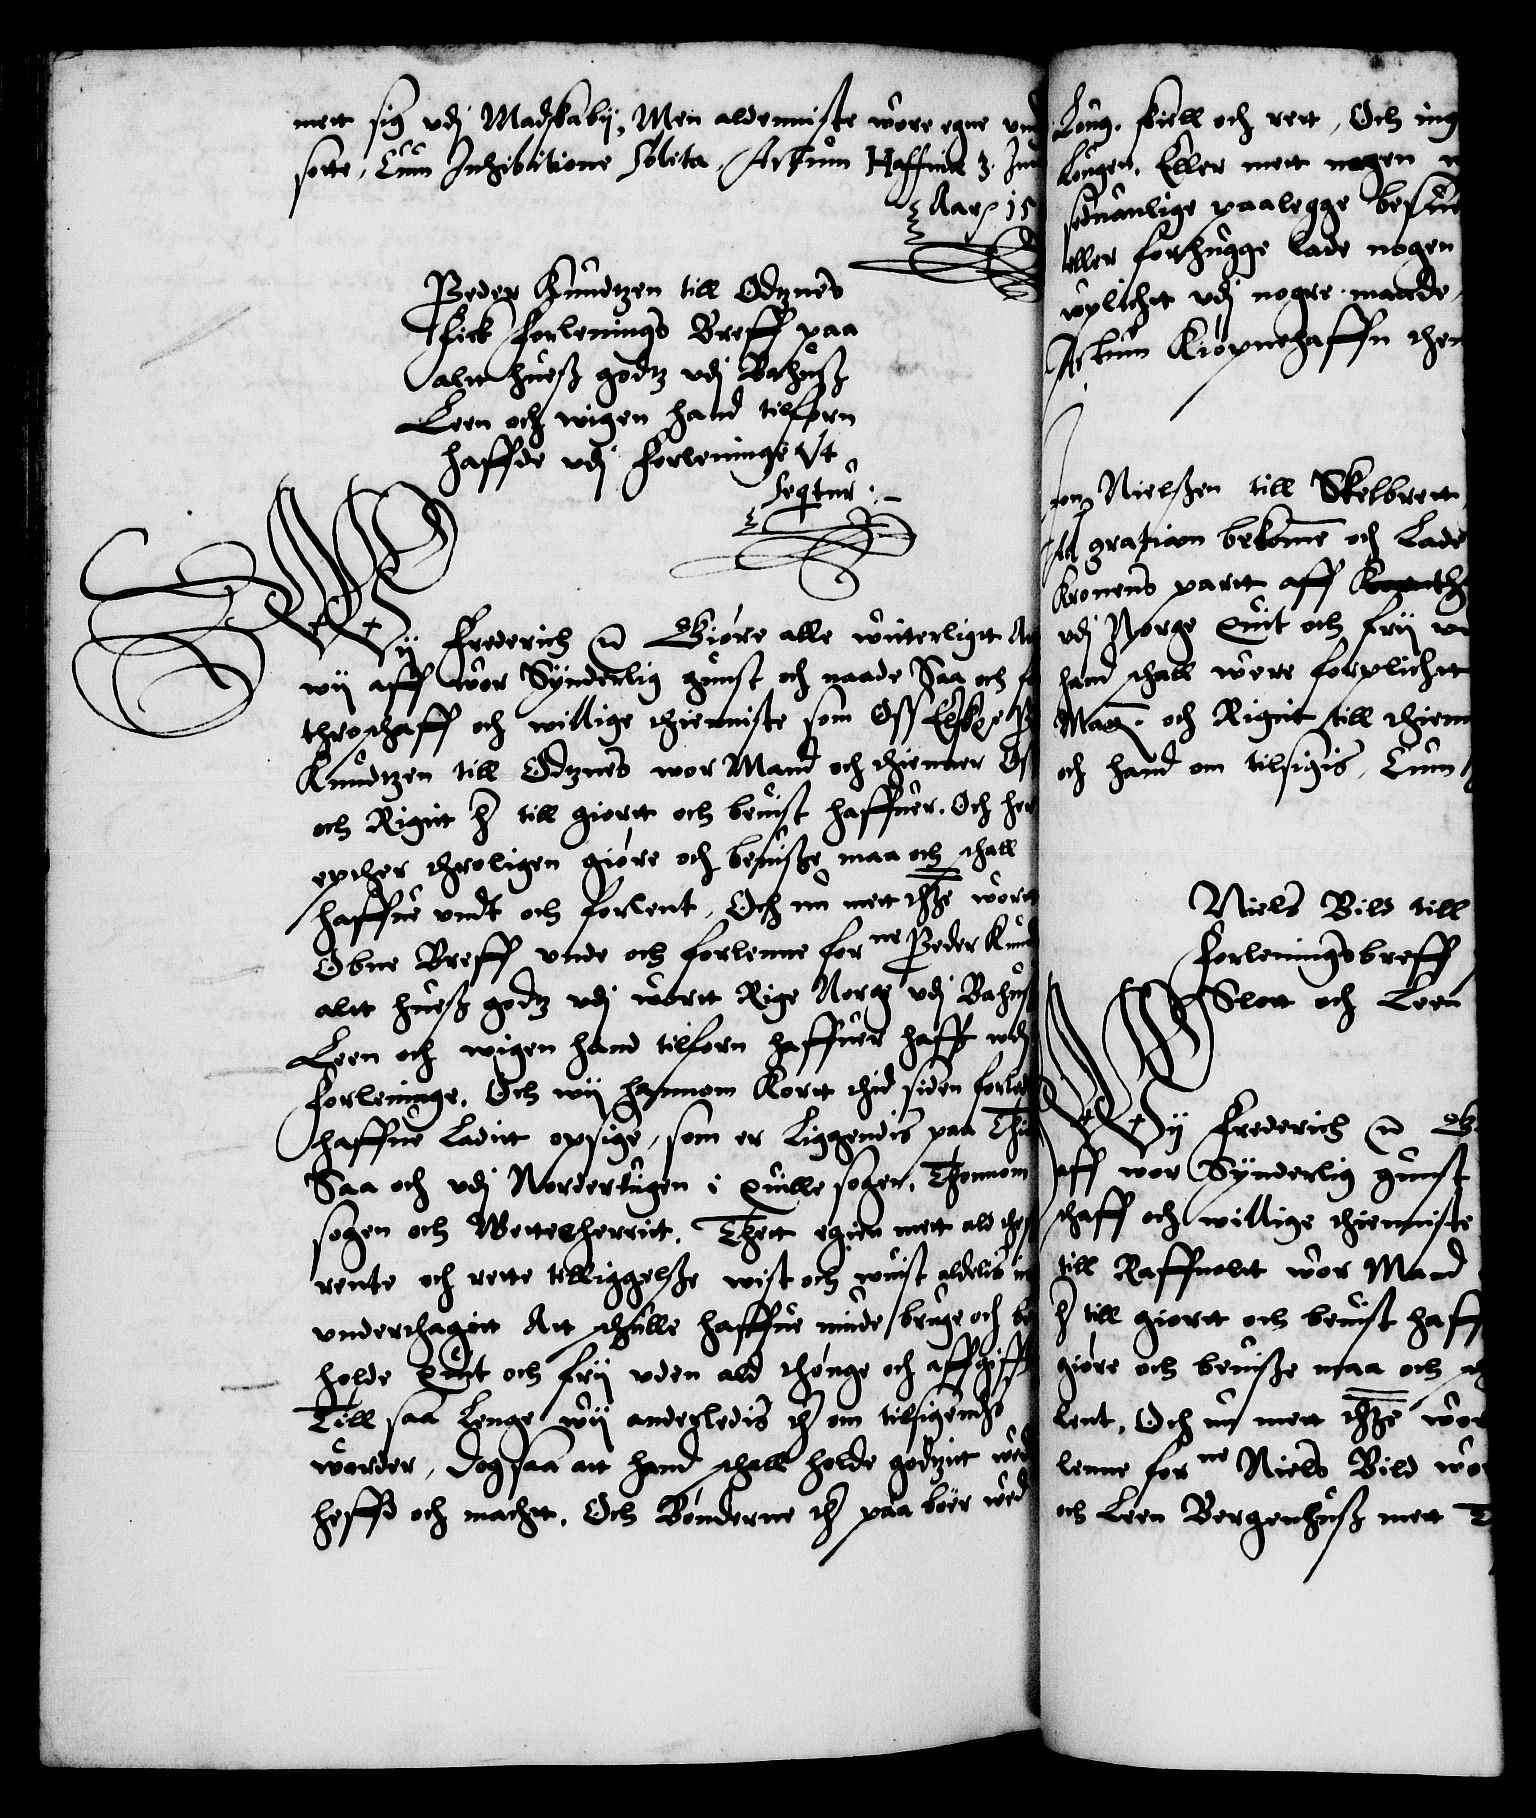 mett sig vdj Madskabij, Men aldenniste wore egne vnd
sotte, Cum Inhibitione Solita. Actum Haffniæ 3. Jun
Aar 15
Peder Knudtzen till Odznes
fick Forlenings Breff paa
alt hues godz vdj Bahuss
Leen och wigen hand tilforn
haffde vdj Forleninge Vt
Seqtur.
Wij Frederich &c Giøre alle witterligt At
wij aff wor Synderlig gunst och naade, Saa och fo
throschaff och willige thienniste som Oss Elske P
Knudtzen till Odznes wor Mand och thienner Os
och Rigit H till giortt och beuist haffuer. Och her
epther throligen giøre och beuisse maa och schall
haffue vndt och forlent, Och nu mett thze wort
Obne Breff vnde och forlenne for ne Peder Knud
alt huess godz vdj wortt Rige Norge vdj Bahus
Leen och wigen hand tilforn haffuer hafft wdj
forleninge. Och wij hannom Kort thid siden forled
haffue Ladit opsige, som er Liggendis paa Thi
Saa och vdj Norderuigen i Quille sogen, Thonnom
sogen och Wetteherrit. Thett eigen mett ald thes
rente och rette telliggelsse wist och wuist aldelis in
vnderthagit At schulle haffue nyde bruge och be
holde quit och frij vden ald thönge och affgifft
Till saa Lenge wij anderledis th om tilsigendis
worder, dog saa att hand schall holde godzit wed
heffd och macht. Och Bønderne th paa boer wed
Loug, skiell och rett, Och ing
Lougen. Eller mett nogen n
sedwanlige paalegge besue
eller forhugge lade nogen
wplicht vdj nogre maade,
Actum Kiøpnehaffn then
Nielssen till Skelbrett
Ad gratiam bekomme och Lade
Kronens partt aff
vdj Norge quit och frij
hand schall were forplichtt
Matt. och Rigit till thienn
och hand om tilsigis, Cum
Niels Bild till
Forleningsbreff
Slott och Leen
Wij Frederich &c G
aff wor Synderlig gunst
schaff och willige thienniste
till Raffnholt wor Mand
H till giortt och beuist haff
giøre och beuisse maa och
lent. Och nu mett thze wor
lenne for ne Niels Bild wor
och Leen Bergenhuss mett